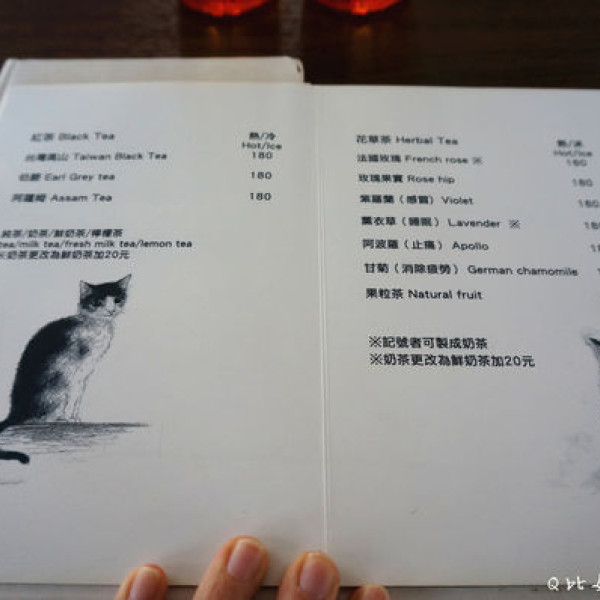 紅茶 Black Tea 熱/冷
Hot/Ice
台灣高山 Taiwan Black Tea 180
伯爵 Earl Grey tea 180
阿薩姆 Assam Tea 180
純茶/奶茶/鮮奶茶/檸檬茶
tea/milk tea/fresh milk tea/lemon tea
※奶茶更改為鮮奶茶加20元
花草茶 Herbal Tea 熱/冰
Hot/Ice
法國玫瑰 French rose ※ 180
玫瑰果實 Rose hip 180
紫羅蘭（感冒）Violet 180
薰衣草（睡眠）Lavender ※
阿波羅（止痛）Apollo
甘菊（消除疲勞）German chamomile
果粒茶 Natural fruit
※記號者可製成奶茶
※奶茶更改為鮮奶茶加20元